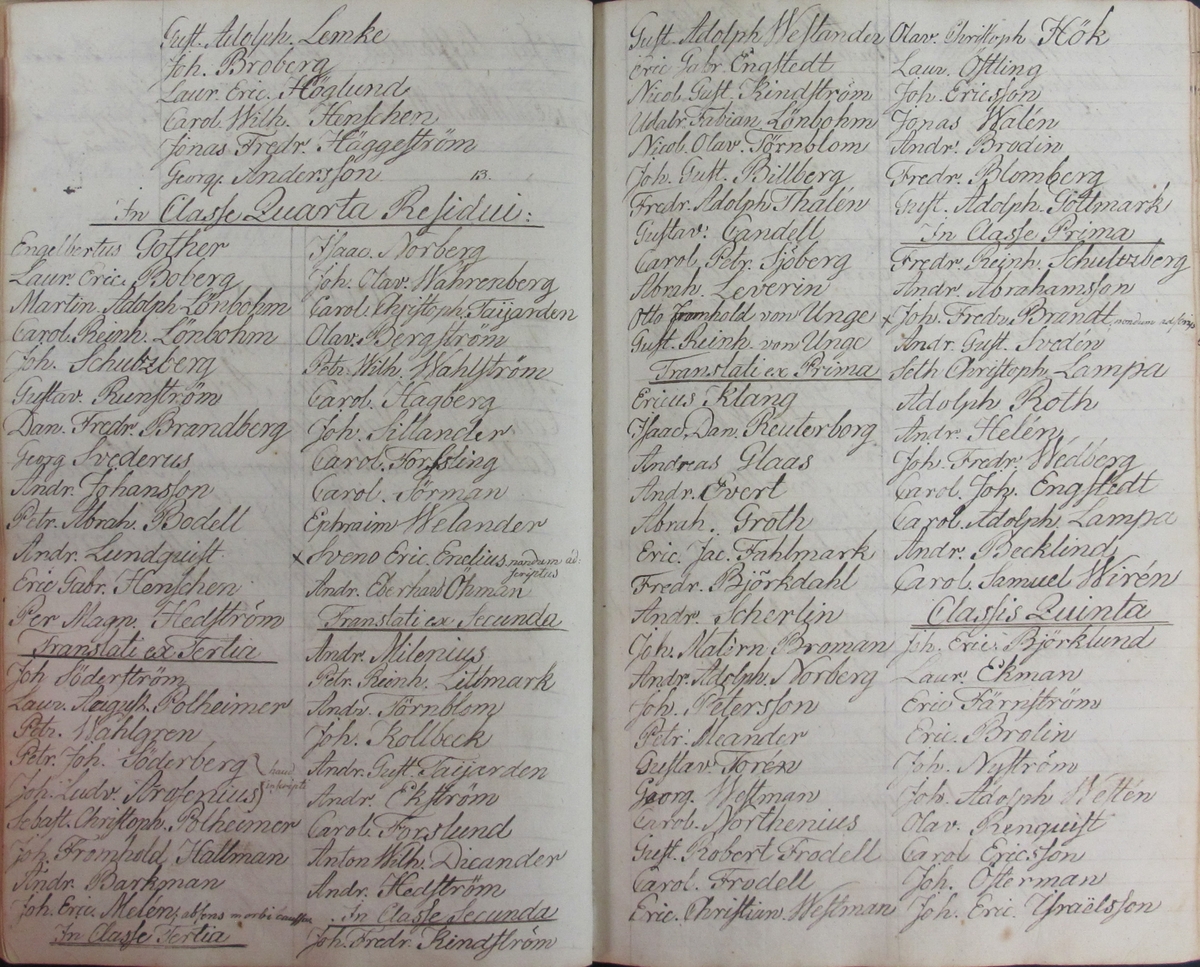 Gust. Adolph. Lemke
Joh. Broberg
Laur. Eric. Höglund
Carol. Wilh. Henschen
Jonas Fredr. Häggeström
Georg. Andersson 13.
In Classe Quarta Residui:
Engelbertus Gother
Laur. Eric. Boberg
Martin Adolph Lönbohm
Carol. Reinh. Lönbohm
Joh. Schutzberg
Gustav. Runström
Dan. Fredr. Brandberg
Georg Svederus
Andr. Johansson
Petr. Abrah. Bodell
Andr. Lundquist
Eric Gabr. Henschen
Per Magn. Hedström
Translati ex Tertia
Joh Söderström
Laur. August. Polheimer
Petr. Wahlgren
Petr. Joh. Söderberg
Joh. Ludv. Arosenius
Sebast. Christoph. Polheimer
Joh. Fromhold Hallman
Andr. Barkman
Joh. Eric. Melén, absens morbi caussa
In Classe Tertia
Isaac. Norberg
Joh. Olav. Wahrenberg
Carol. Christoph. Taijarden
Olav. Bergström
Petr. Wilh. Wahlström
Carol. Hagberg
Joh. Sillander
Carol. Forssling
Carol. Törman
Ephraim Welander
x Sveno Eric. Enelius nondum ad-
scriptus
Andr. Eberhard Öhman
Translati ex Secunda
Andr. Milenius
Petr. Reinh. Littmark
Andr. Törnblom
Joh. Kollbeck
Andr. Gust. Taijarden
Andr. Ekström
Carol. Forslund
Anton Wilh. Dicander
Andr. Hedström
In Classe Secunda
Joh. Fredr. Kindström
Gust. Adolph Westander
Eric Gabr. Engstedt
Nicol. Gust. Kindström
Udalr. Fabian Lönbohm
Nicol. Olav. Törnblom
Joh. Gust. Billberg
Fredr. Adolph Thalén
Gustav. Candell
Carol. Petr. Sjöberg
Abrah. Leverin
Otto Fromhold von Unge
Gust. Reinh. von Unge
Translati ex Prima
Ericus Klang
Isaac. Dan. Reuterborg
Andreas Glaas
Andr. Evert
Abrah. Groth
Eric. Jac. Fahlmark
Fredr. Björkdahl
Andr. Scherlin
Joh. Matörn Broman
Andr. Adolph. Norberg
Joh. Petersson
Petr. Meander
Gustav. Torén
Georg. Westman
Carol. Northenius
Gust. Robert Frodell
Carol. Frodell
Eric. Christian Westman
Olav. Christoph Hök
Laur. Östling
Joh. Ericsson
Jonas Walén
Andr. Brodin
Fredr. Blomberg
Gust. Adolph. Göttmark
In Classe Prima
Fredr. Reinh. Schutzberg
Andr. Abrahamsson
x Joh. Fredr. Brandt, nondum adscrip.
Andr. Gust. Svedén
Seth Christoph. Lampa
Adolph Roth
Andr. Helén
Joh. Fredr. Wedberg
Carol. Joh. Engstedt
Carol. Adolph. Lampa
Andr. Becklind
Carol. Samuel Wirén
Classis Quinta
Joh. Eric. Björklund
Laur. Ekman
Eric Färnström
Eric. Brolin
Joh. Nyström
Joh. Adolph Westén
Olav. Renquist
Carol Ericsson
Joh. Österman
Joh. Eric. Israëlsson